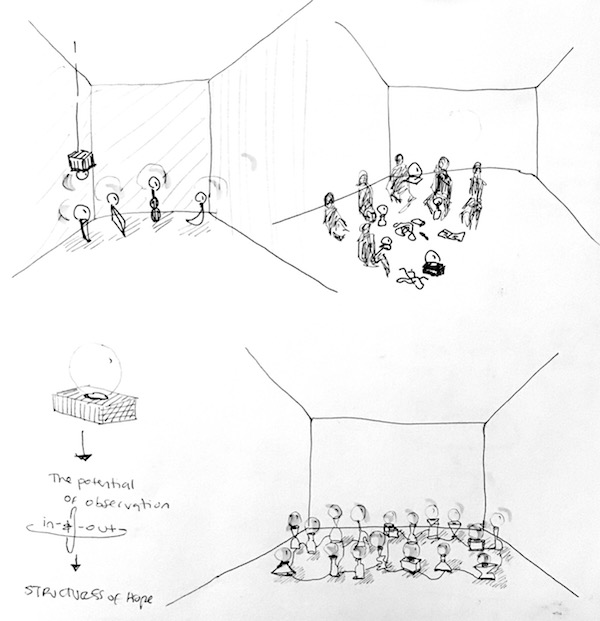 The potential
of observation
in- -out-
STRUCTURES of Hope